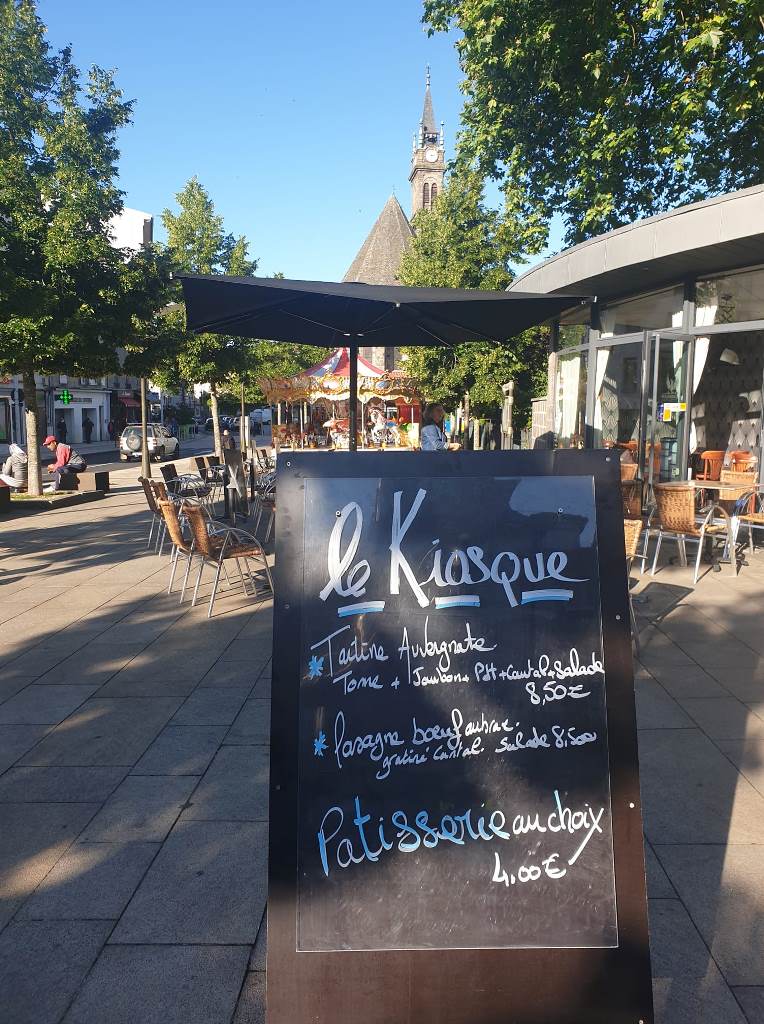 le Kiosque
* Tartine Auvergnate
Tome + Jambon + Pdt + Cantal + Salade
8,50€
* lasagne boeuf aubrac.
gratiné Cantal Salade 8,50€
Patisserie au choix
4,00€